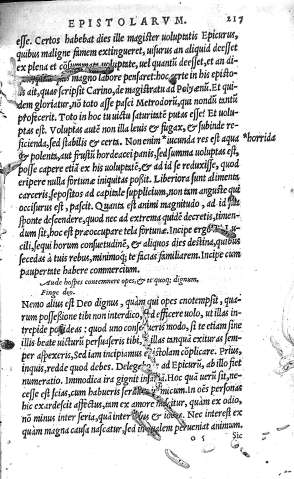 EPISTOLARVM. 217
esse. Certos habebat dies ille magister voluptatis Epicurus,
quibus maligne famem extingueret, uisurus an aliquid deesset
ex plena et consummata uoluptate, uel quantũ deesset, et an di-
magno labore pensaret: hoc certe in his episto-
lis ait, quas scripsit Carino, de magistratu ad Polyænũ. Et qui-
dem gloriatur, nõ toto asse pasci Metrodorũ, qui nondũ tantũ
profecerit. Toto in hoc tu uictu saturitatẽ putas esse? Et uolu-
ptas est. Voluptas autẽ non illa leuis & fugax, & subinde re-
ficienda, sed stabilis & certa. Non enim *iucunda res est aqua *horrida
& polenta, aut frustũ hordeacei panis, sed summa uoluptas est,
posse capere etiã ex his uoluptatẽ, & ad id se reduxisse, quod
eripere nulla fortunæ iniquitas possit. Liberaliora sunt alimenta
carceris, sepositos ad capitale supplicium, non tam anguste qui
occisurus est, pascit. Quanta est animi magnitudo, ad id sua
sponte descendere, quod nec ad extrema quidẽ decretis, timen-
dum sit, hoc est præoccupare tela fortunæ. Incipe ergo
cili, sequi horum consuetudinẽ, & aliquos dies destina, quibus
secedas à tuis rebus, minimoq; te facias familiarem. Incipe cum
paupertate habere commercium.
Aude hospes contemnere opes, & te quoq; dignum.
Finge deo.
Nemo alius est Deo dignus, quàm qui opes cõtempsit, qua-
rum possessione tibi non interdico, sed efficere uolo, ut illas in-
trepide possideas: quod uno conse ueris modo, si te etiam sine
illis beate uicturũ persuaseris tibi, illas tanquã exituras sem-
per aspexeris. Sed iam incipiamus epistolam cõplicare. Prius,
inquis, redde quod debes. Delega ad Epicurũ, ab illo fiet
numeratio. Immodica ira gignit insaniã. Hoc quã uerũ sit, ne-
cesse est scias, cum habueris seruũ & inimicum. In oẽs personas
hic exardescit affectus, tam ex amore nascitur, quàm ex odio,
nõ minus inter seria, quã inter lusus & iocos. Nec interest ex
quàm magna causa nascatur, sed in qualem perueniat animum.
o 5 Sic